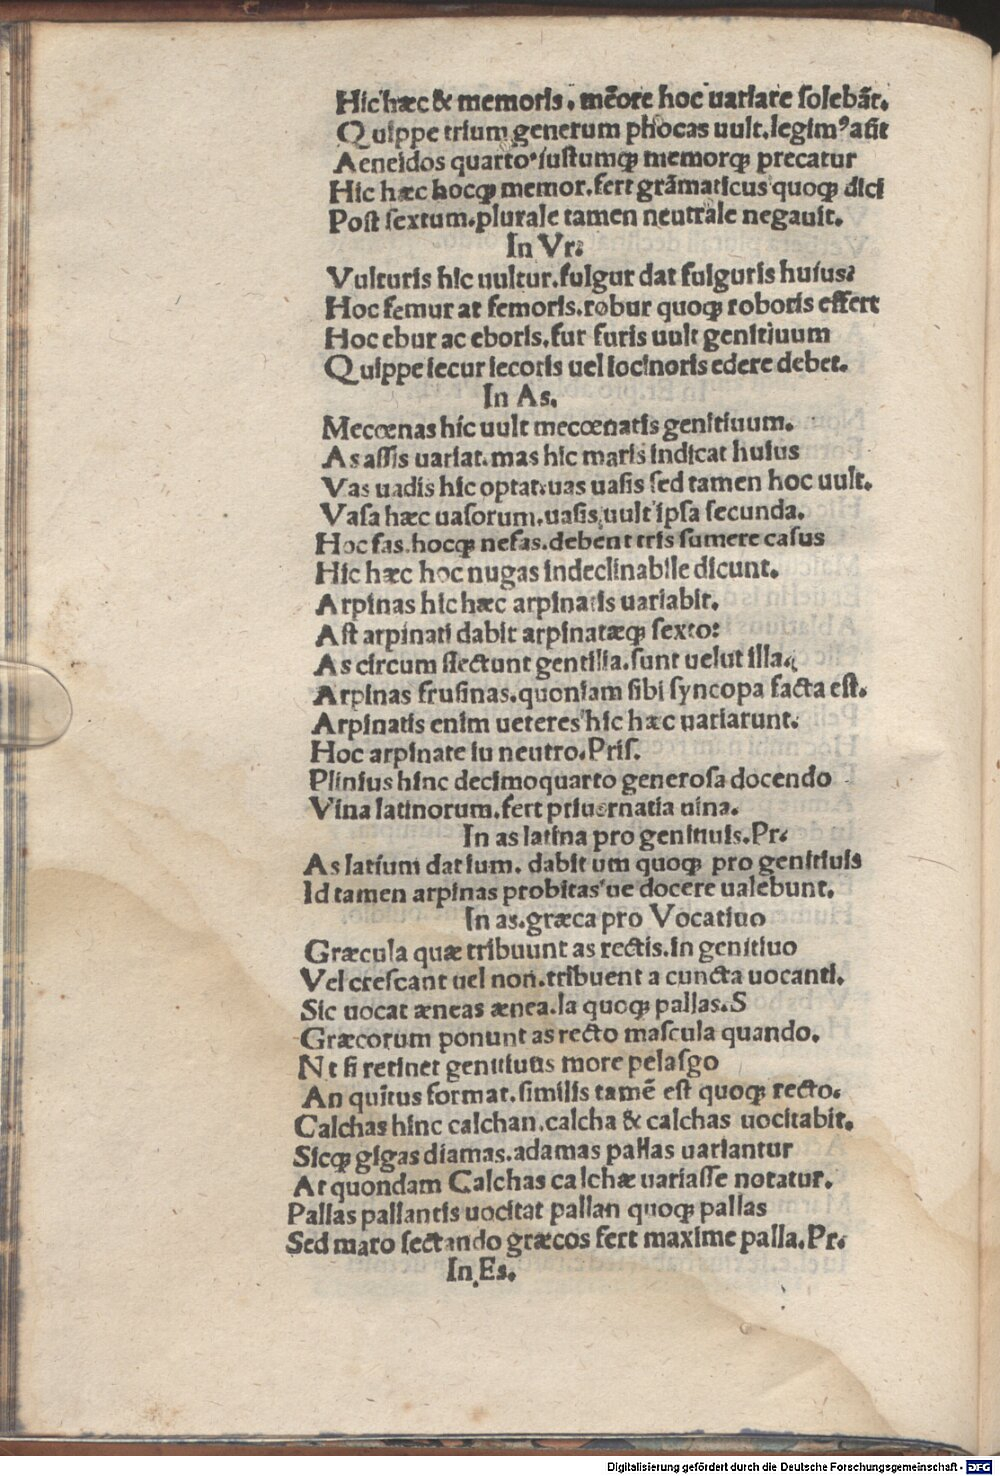 Hic hæc & memoris . mẽore hoc uariare solebãt.
Quippe trium generum phocas uult. legimꝰ atit
Aeneidos quarto. iustumqꝫ memorqꝫ precatur
Hic hæc hocqꝫ memor. fert grãmaticus quoqꝫ dici
Post sextum. plurale tamen neutrale negauit.
In Vr.
Vulturis hic uultur. fulgur dat fulguris huius.
Hoc femur at femoris. robur quoqꝫ roboris effert
Hoc ebur ac eboris. fur furis uult genitiuum
Quippe iecur iecoris uel iocinoris edere debet.
In As.
Mecœnas hic uult mecœnatis genitiuum.
As assis uariat. mas hic maris indicat huius
Vas uadis hic optat. uas uasis sed tamen hoc uult.
Vasa hæc uasorum. uasis uult ipsa secunda.
Hoc fas. hocqꝫ nefas. debent tris sumere casus
Hic hæc hoc nugas indeclinabile dicunt.
Arpinas hic hæc arpinatis uariabit.
Ast arpinati dabit arpinatæqꝫ sexto:
As circum flectunt gentilia. sunt uelut illa.
Arpinas frusinas. quoniam sibi syncopa facta est.
Arpinatis enim ueteres hic hæc uariarunt.
Hoc arpinate iu neutro. Pris.
Plinius hinc decimoquarto generosa docendo
Vina latinorum. fert priuernatia uina.
In as latina pro genitiuis. Pr.
As latium datium. dabit um quoqꝫ pro genitiuis
Id tamen arpinas probitas ue docere ualebunt.
In as. græca pro Vocatiuo
Græcula quæ tribuunt as rectis. in genitiuo
Vel crescant uel non. tribuent a cuncta uocanti.
Sic uocat æneas ænea. la quoqꝫ pallas. S
Græcorum ponunt as recto mascula quando.
Nt si retinet genitiuus more pelasgo
An quĩtus format. similis tamẽ est quoqꝫ recto.
Calchas hinc calchan. calcha & calchas uocitabit.
Sicqꝫ gigas diamas. adamas pallas uariantur
At quondam Calchas calchæ uariasse notatur.
Pallas pallantis uocitat pallan quoqꝫ pallas
Sed maro sectando græcos fert maxime palla. Pr.
In Es.
Digitalisierung gefördert durch die Deutsche Forschungsgemeinschaft - DFG